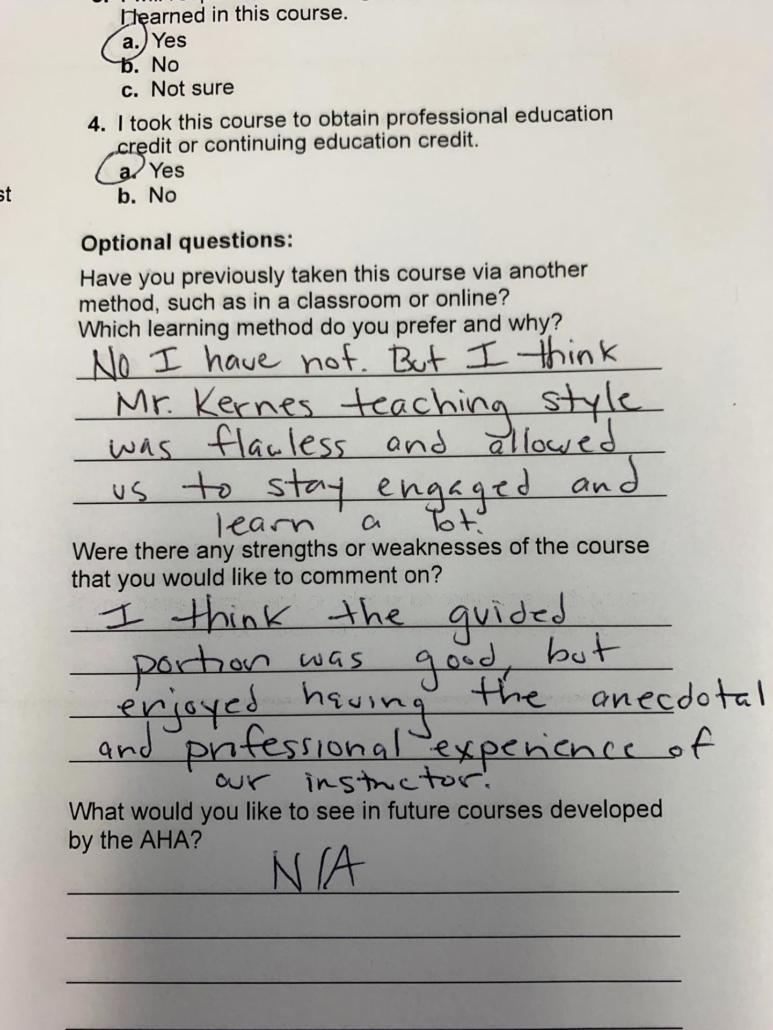 I learned in this course.
a. Yes
b. No
c. Not sure
4. I took this course to obtain professional education
credit or continuing education credit.
a. Yes
b. No
st
Optional questions:
Have you previously taken this course via another
method, such as in a classroom or online?
Which learning method do you prefer and why?
No I have not. But I think
Mr. Kernes teaching style
was flawless and allowed
us to stay engaged and
learn a lot.
Were there any strengths or weaknesses of the course
that you would like to comment on?
I think the guided
portion was good, but
enjoyed having the anecdotal
and professional experience of
our instructor.
What would you like to see in future courses developed
by the AHA?
N/A